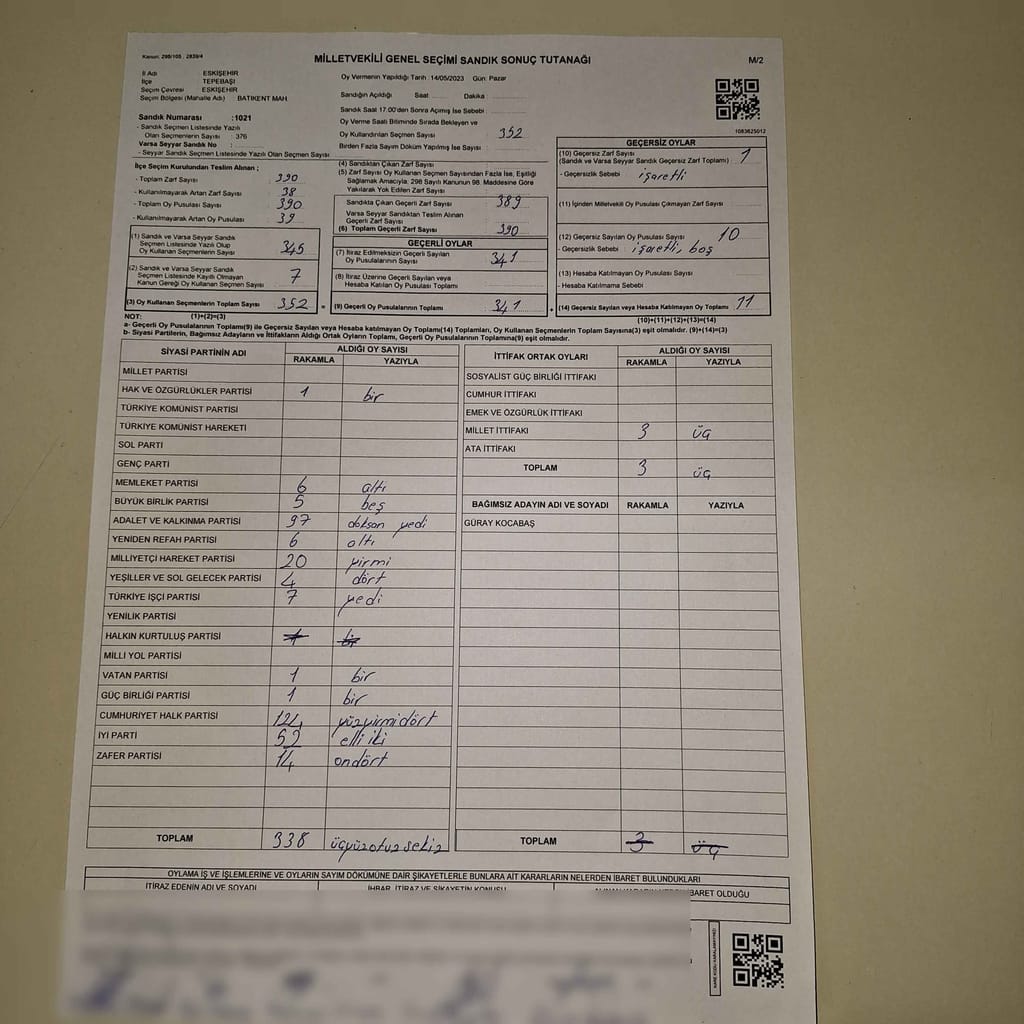 Kanun: 298/105 , 2839/4
MİLLETVEKİLİ GENEL SEÇİMİ SANDIK SONUÇ TUTANAĞI
M/2
İl Adı ESKİŞEHİR
İlçe TEPEBAŞI
Seçim Çevresi ESKİŞEHİR
Seçim Bölgesi (Mahalle Adı) : BATIKENT MAH.
Oy Vermenin Yapıldığı Tarih :14/05/2023 Gün: Pazar
Sandığın Açıldığı Saat Dakika
Sandık Saat 17.00'den Sonra Açımış İse Sebebi
Oy Verme Saati Bitiminde Sırada Bekleyen ve
Oy Kullandırılan Seçmen Sayısı 352
Birden Fazla Sayım Döküm Yapılmış İse Sayısı
1083625012
Sandık Numarası :1021
- Sandık Seçmen Listesinde Yazılı
Olan Seçmenlerin Sayısı : 376
Varsa Seyyar Sandık No :
- Seyyar Sandık Seçmen Listesinde Yazılı Olan Seçmen Sayısı
İlçe Seçim Kurulundan Teslim Alınan ;
- Toplam Zarf Sayısı 390
- Kullanılmayarak Artan Zarf Sayısı 38
- Toplam Oy Pusulası Sayısı 390
- Kullanılmayarak Artan Oy Pusulası 39
(1) Sandık ve Varsa Seyyar Sandık
Seçmen Listesinde Yazılı Olup
Oy Kullanan Seçmenlerin Sayısı 345
(2) Sandık ve Varsa Seyyar Sandık
Seçmen Listesinde Kayıtlı Olmayan
Kanun Gereği Oy Kullanan Seçmen Sayısı 7
(3) Oy Kullanan Seçmenlerin Toplam Sayısı 352 =
(4) Sandıktan Çıkan Zarf Sayısı
(5) Zarf Sayısı Oy Kullanan Seçmen Sayısından Fazla İse, Eşitliği
Sağlamak Amacıyla, 298 Sayılı Kanunun 98. Maddesine Göre
Yakılarak Yok Edilen Zarf Sayısı
Sandıkta Çıkan Geçerli Zarf Sayısı 389
Varsa Seyyar Sandıktan Teslim Alınan
Geçerli Zarf Sayısı
(6) Toplam Geçerli Zarf Sayısı 390
GEÇERLİ OYLAR
(7) İtiraz Edilmeksizin Geçerli Sayılan
Oy Pusulalarının Sayısı 341
(8) İtiraz Üzerine Geçerli Sayılan veya
Hesaba Katılan Oy Pusulaları Toplamı
(9) Geçerli Oy Pusulalarının Toplamı 341 +
GEÇERSİZ OYLAR
(10) Geçersiz Zarf Sayısı
(Sandık ve Varsa Seyyar Sandık Geçersiz Zarf Toplamı) 1
- Geçersizlik Sebebi işaretli
(11) İçinden Milletvekili Oy Pusulası Çıkmayan Zarf Sayısı
(12) Geçersiz Sayılan Oy Pusulası Sayısı 10
- Geçersizlik Sebebi : işaretli, boş
(13) Hesaba Katılmayan Oy Pusulası Sayısı
- Hesaba Katılmama Sebebi
(14) Geçersiz Sayılan veya Hesaba Katılmayan Oy Toplamı 11
NOT: (1)+(2)=(3) (10)+(11)+(12)+(13)=(14)
a- Geçerli Oy Pusulaları Toplamı(9) ile Geçersiz Sayılan veya Hesaba katılmayan Oy Toplamı(14) Toplamları, Oy Kullanan Seçmenlerin Toplam Sayısına(3) eşit olmalıdır. (9)+(14)=(3)
b- Siyasi Partilerin, Bağımsız Adayların ve İttifakların Aldığı Ortak Oyların Toplamı, Geçerli Oy Pusulalarının Toplamına(9) eşit olmalıdır.
SİYASİ PARTİNİN ADI ALDIĞI OY SAYISI
RAKAMLA YAZIYLA
MİLLET PARTİSİ
HAK VE ÖZGÜRLÜKLER PARTİSİ 1 bir
TÜRKİYE KOMÜNİST PARTİSİ
TÜRKİYE KOMÜNİST HAREKETİ
SOL PARTİ
GENÇ PARTİ
MEMLEKET PARTİSİ 6 altı
BÜYÜK BİRLİK PARTİSİ 5 beş
ADALET VE KALKINMA PARTİSİ 97 doksan yedi
YENİDEN REFAH PARTİSİ 6 altı
MİLLİYETÇİ HAREKET PARTİSİ 20 yirmi
YEŞİLLER VE SOL GELECEK PARTİSİ 4 dört
TÜRKİYE İŞÇİ PARTİSİ 7 yedi
YENİLİK PARTİSİ
HALKIN KURTULUŞ PARTİSİ 1 bir
MİLLİ YOL PARTİSİ
VATAN PARTİSİ 1 bir
GÜÇ BİRLİĞİ PARTİSİ 1 bir
CUMHURİYET HALK PARTİSİ 124 yüzyirmidört
İYİ PARTİ 52 elli iki
ZAFER PARTİSİ 14 ondört
TOPLAM 338 üçyüzotuzsekiz
İTTİFAK ORTAK OYLARI ALDIĞI OY SAYISI
RAKAMLA YAZIYLA
SOSYALİST GÜÇ BİRLİĞİ İTTİFAKI
CUMHUR İTTİFAKI
EMEK VE ÖZGÜRLÜK İTTİFAKI
MİLLET İTTİFAKI 3 üç
ATA İTTİFAKI
TOPLAM 3 üç
BAĞIMSIZ ADAYIN ADI VE SOYADI RAKAMLA YAZIYLA
GÜRAY KOCABAŞ
TOPLAM 3 üç
OYLAMA İŞ VE İŞLEMLERİNE VE OYLARIN SAYIM DÖKÜMÜNE DAİR ŞİKAYETLERLE BUNLARA AİT KARARLARIN NELERDEN İBARET BULUNDUKLARI
İTİRAZ EDENİN ADI VE SOYADI İHBAR, İTİRAZ VE ŞİKAYETİN KONUSU